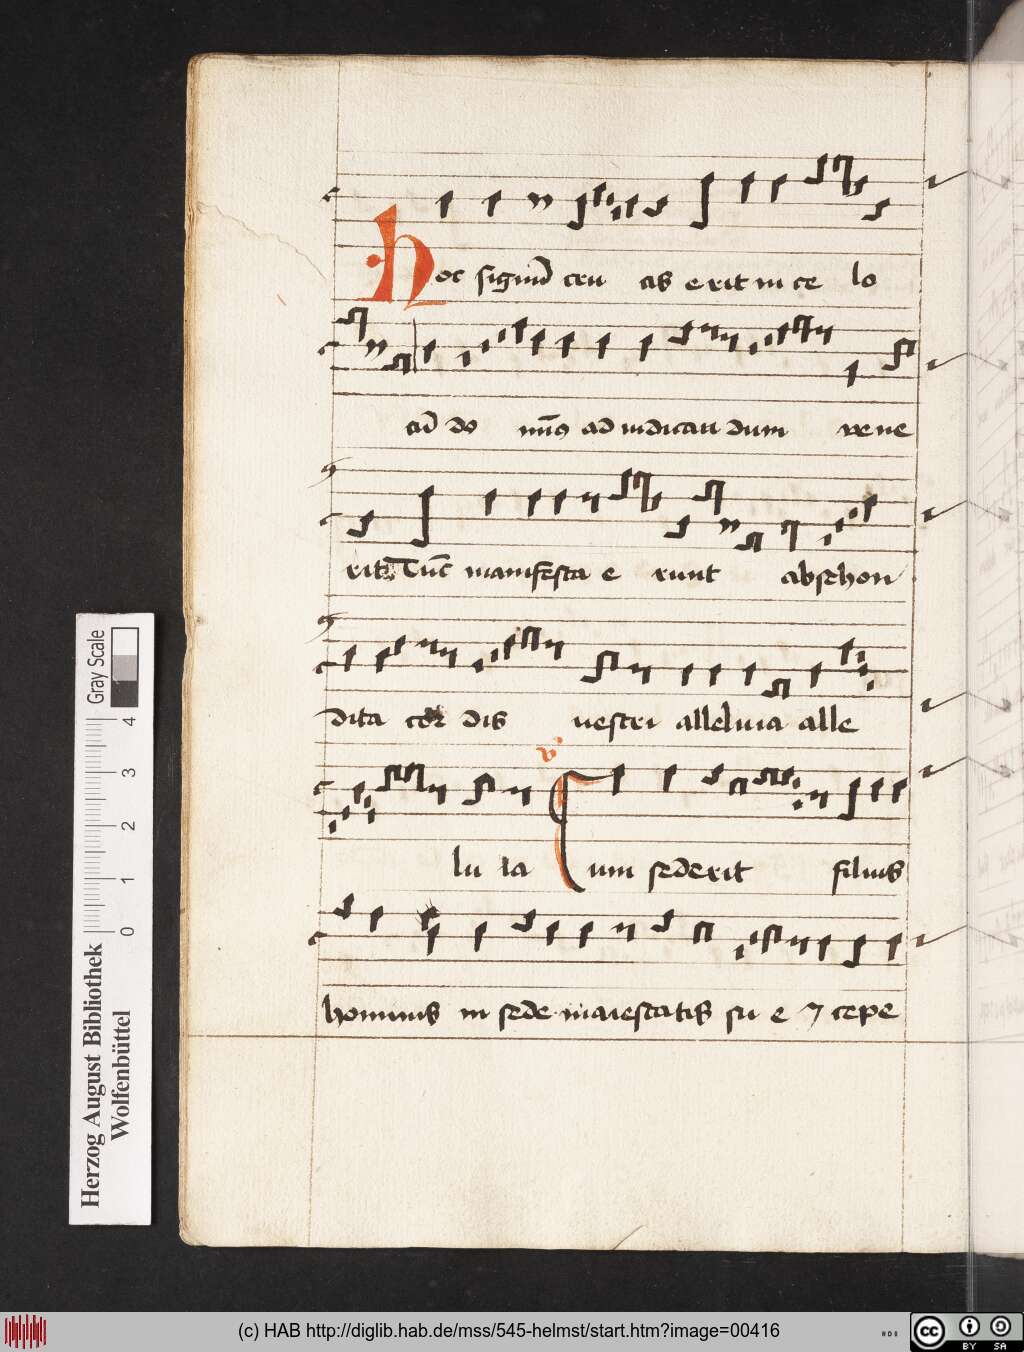 Hoc signũ cru cis e rit in ce lo
cũ do mĩꝰ ad iudican dum vene
rit Tũc manifesta e runt abschon
dita cor dis nestri alleluia alle
lu ia
v̾
Cum sederit filius
hominis in sede maiestatis su e ⁊ cepe
Gray Scale
0 1 2 3 4
Herzog August Bibliothek
Wolfenbüttel
(c) HAB http://diglib.hab.de/mss/545-helmst/start.htm?image=00416
cc BY SA